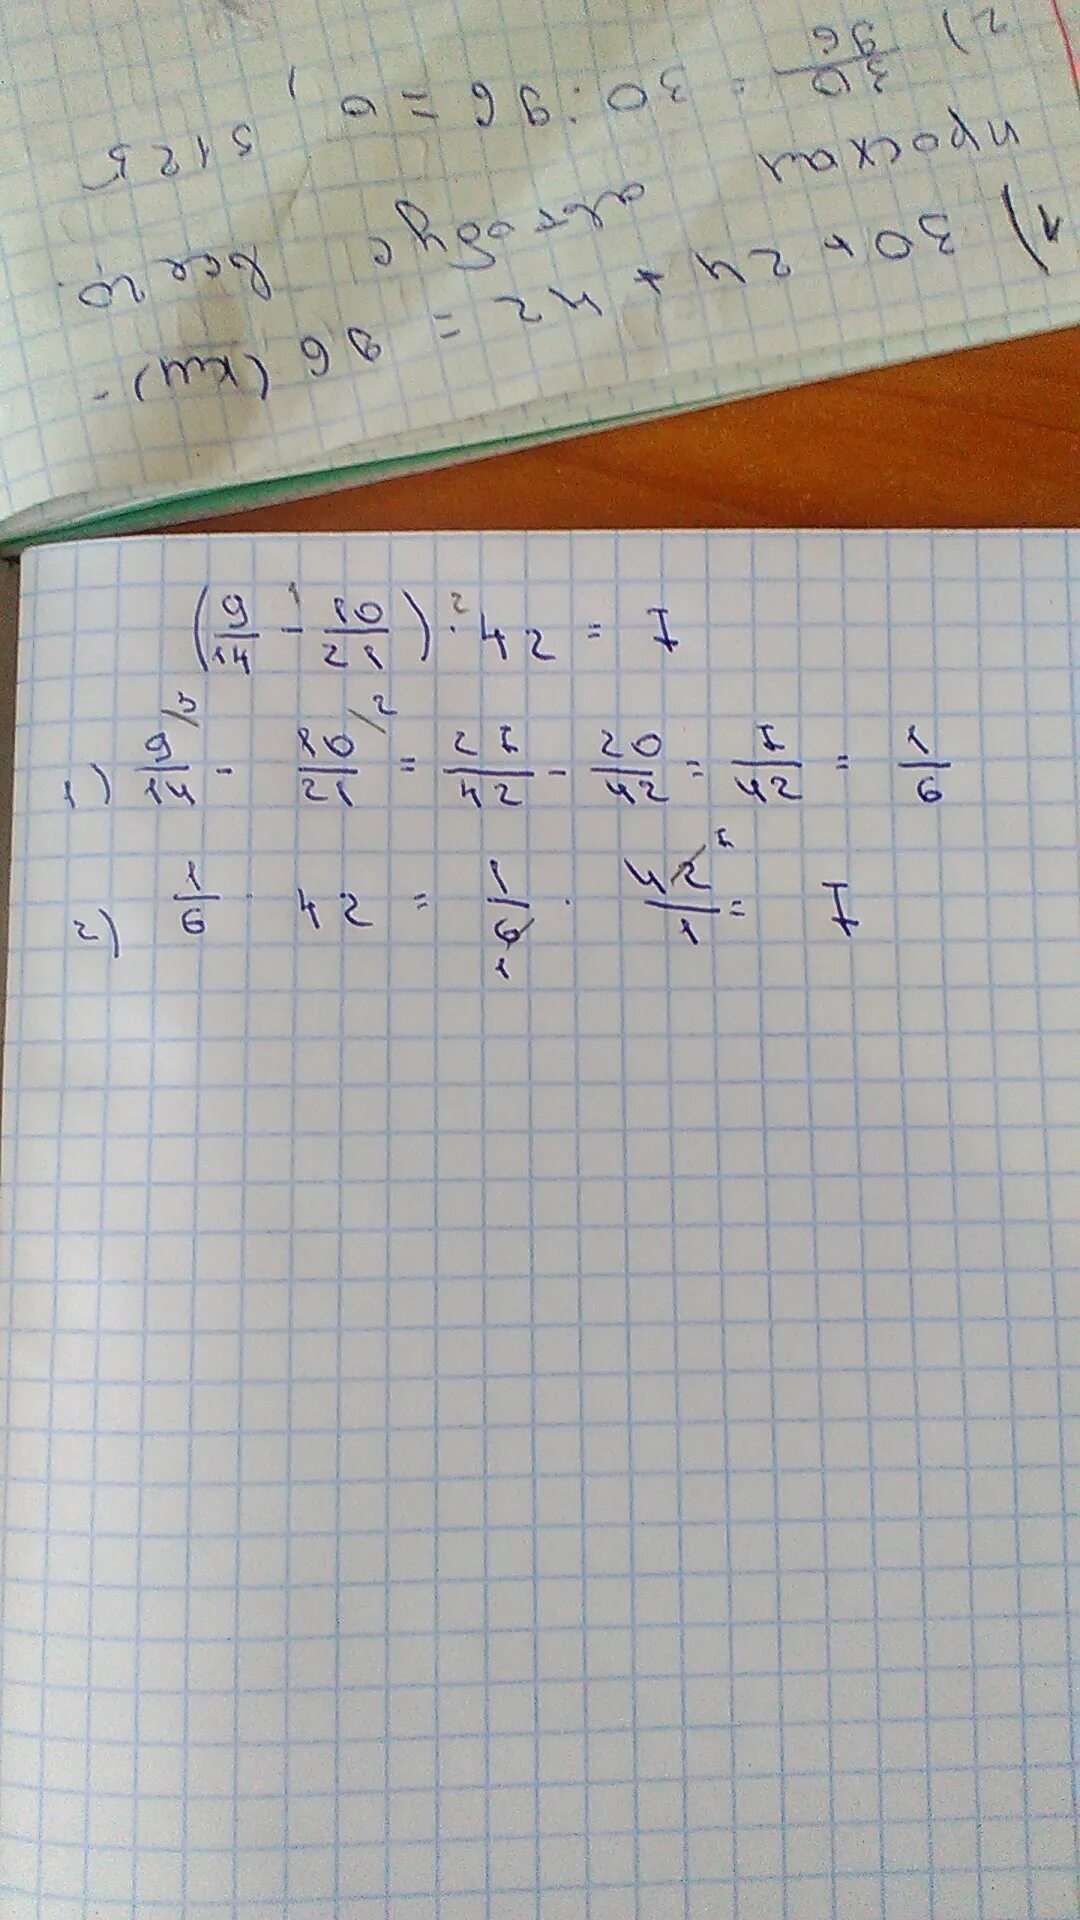 1) 30 + 24 + 42 = 96 (км) -
проехал автобус всего.
2) 30/96 = 30 : 96 = 0,3125
(9/14 - 10/21) · 42 = 7
1) 9/14 ³ - 10/21 ² = 27/42 - 20/42 = 7/42 = 1/6
2) 1/6 · 42 = 1/6 · 42/1 = 7